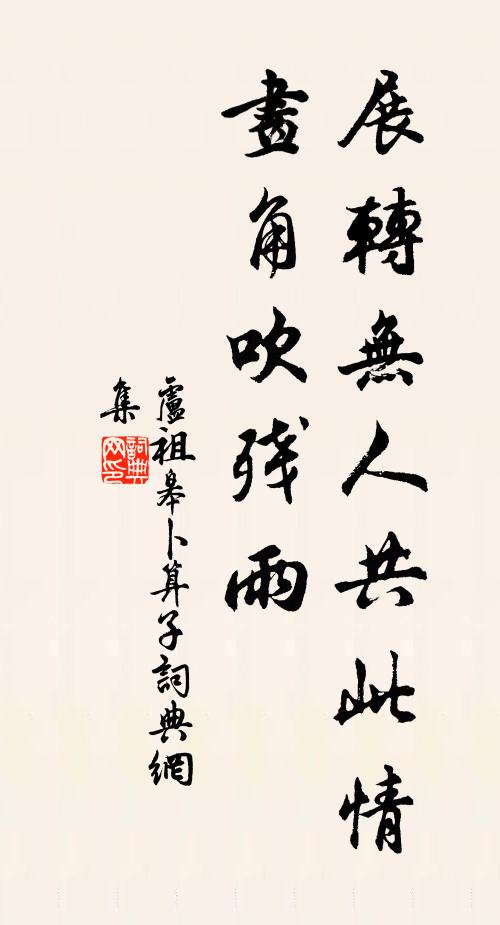 展轉無人共此情
畫角吹残雨
盧祖皋卜算子詞典網
集
詞典網印